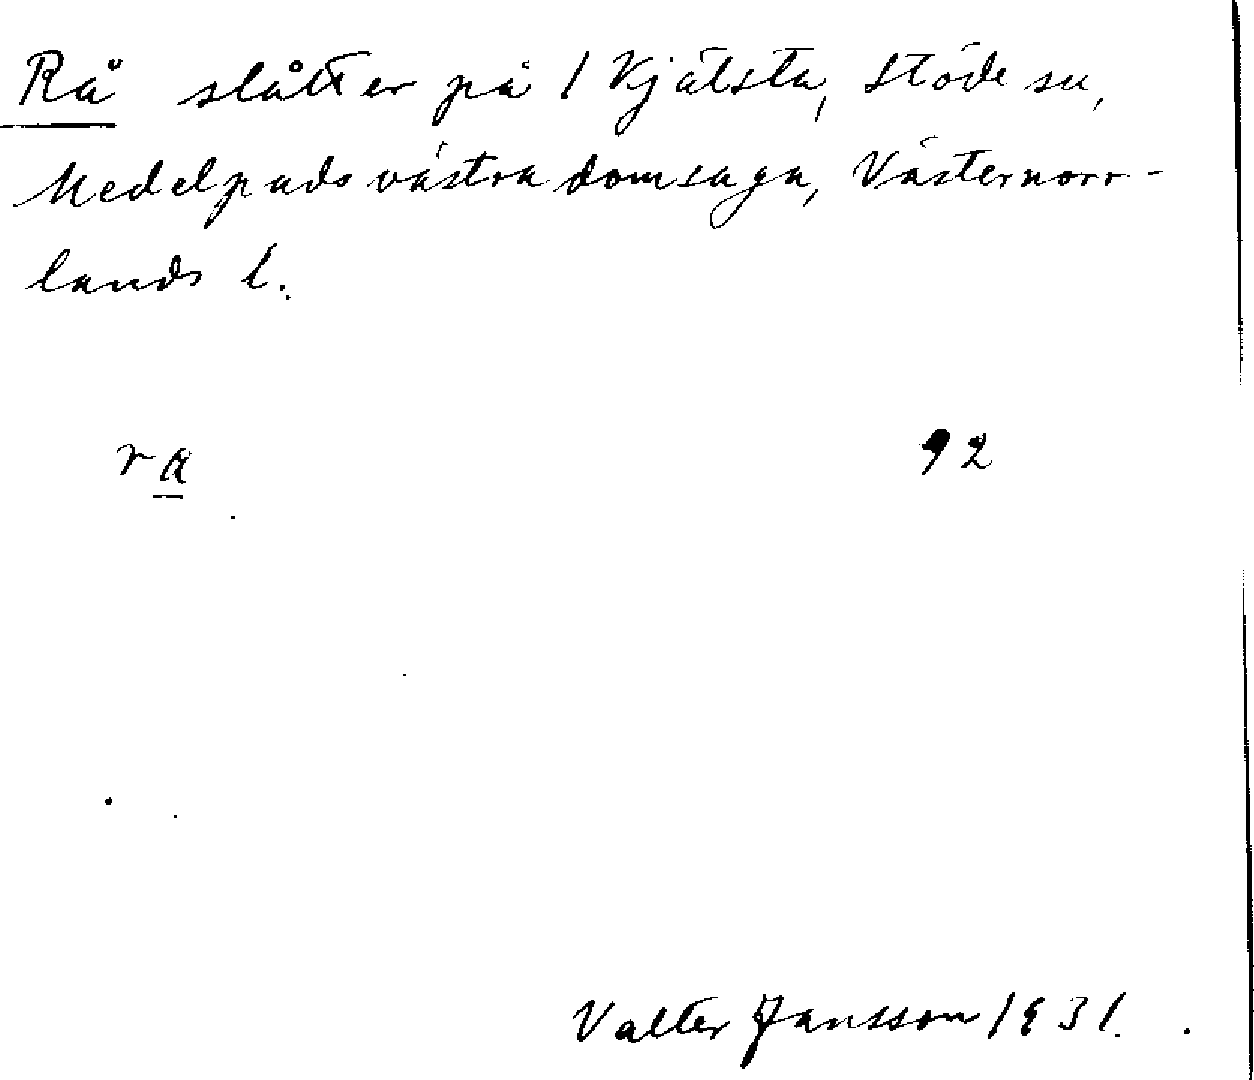 Rå slåtter på 1 Kjälsta, Stöde sn,
Medelpads västra domsaga, Västernorr-
lands l.
ra 92
Valter Jansson 1931.